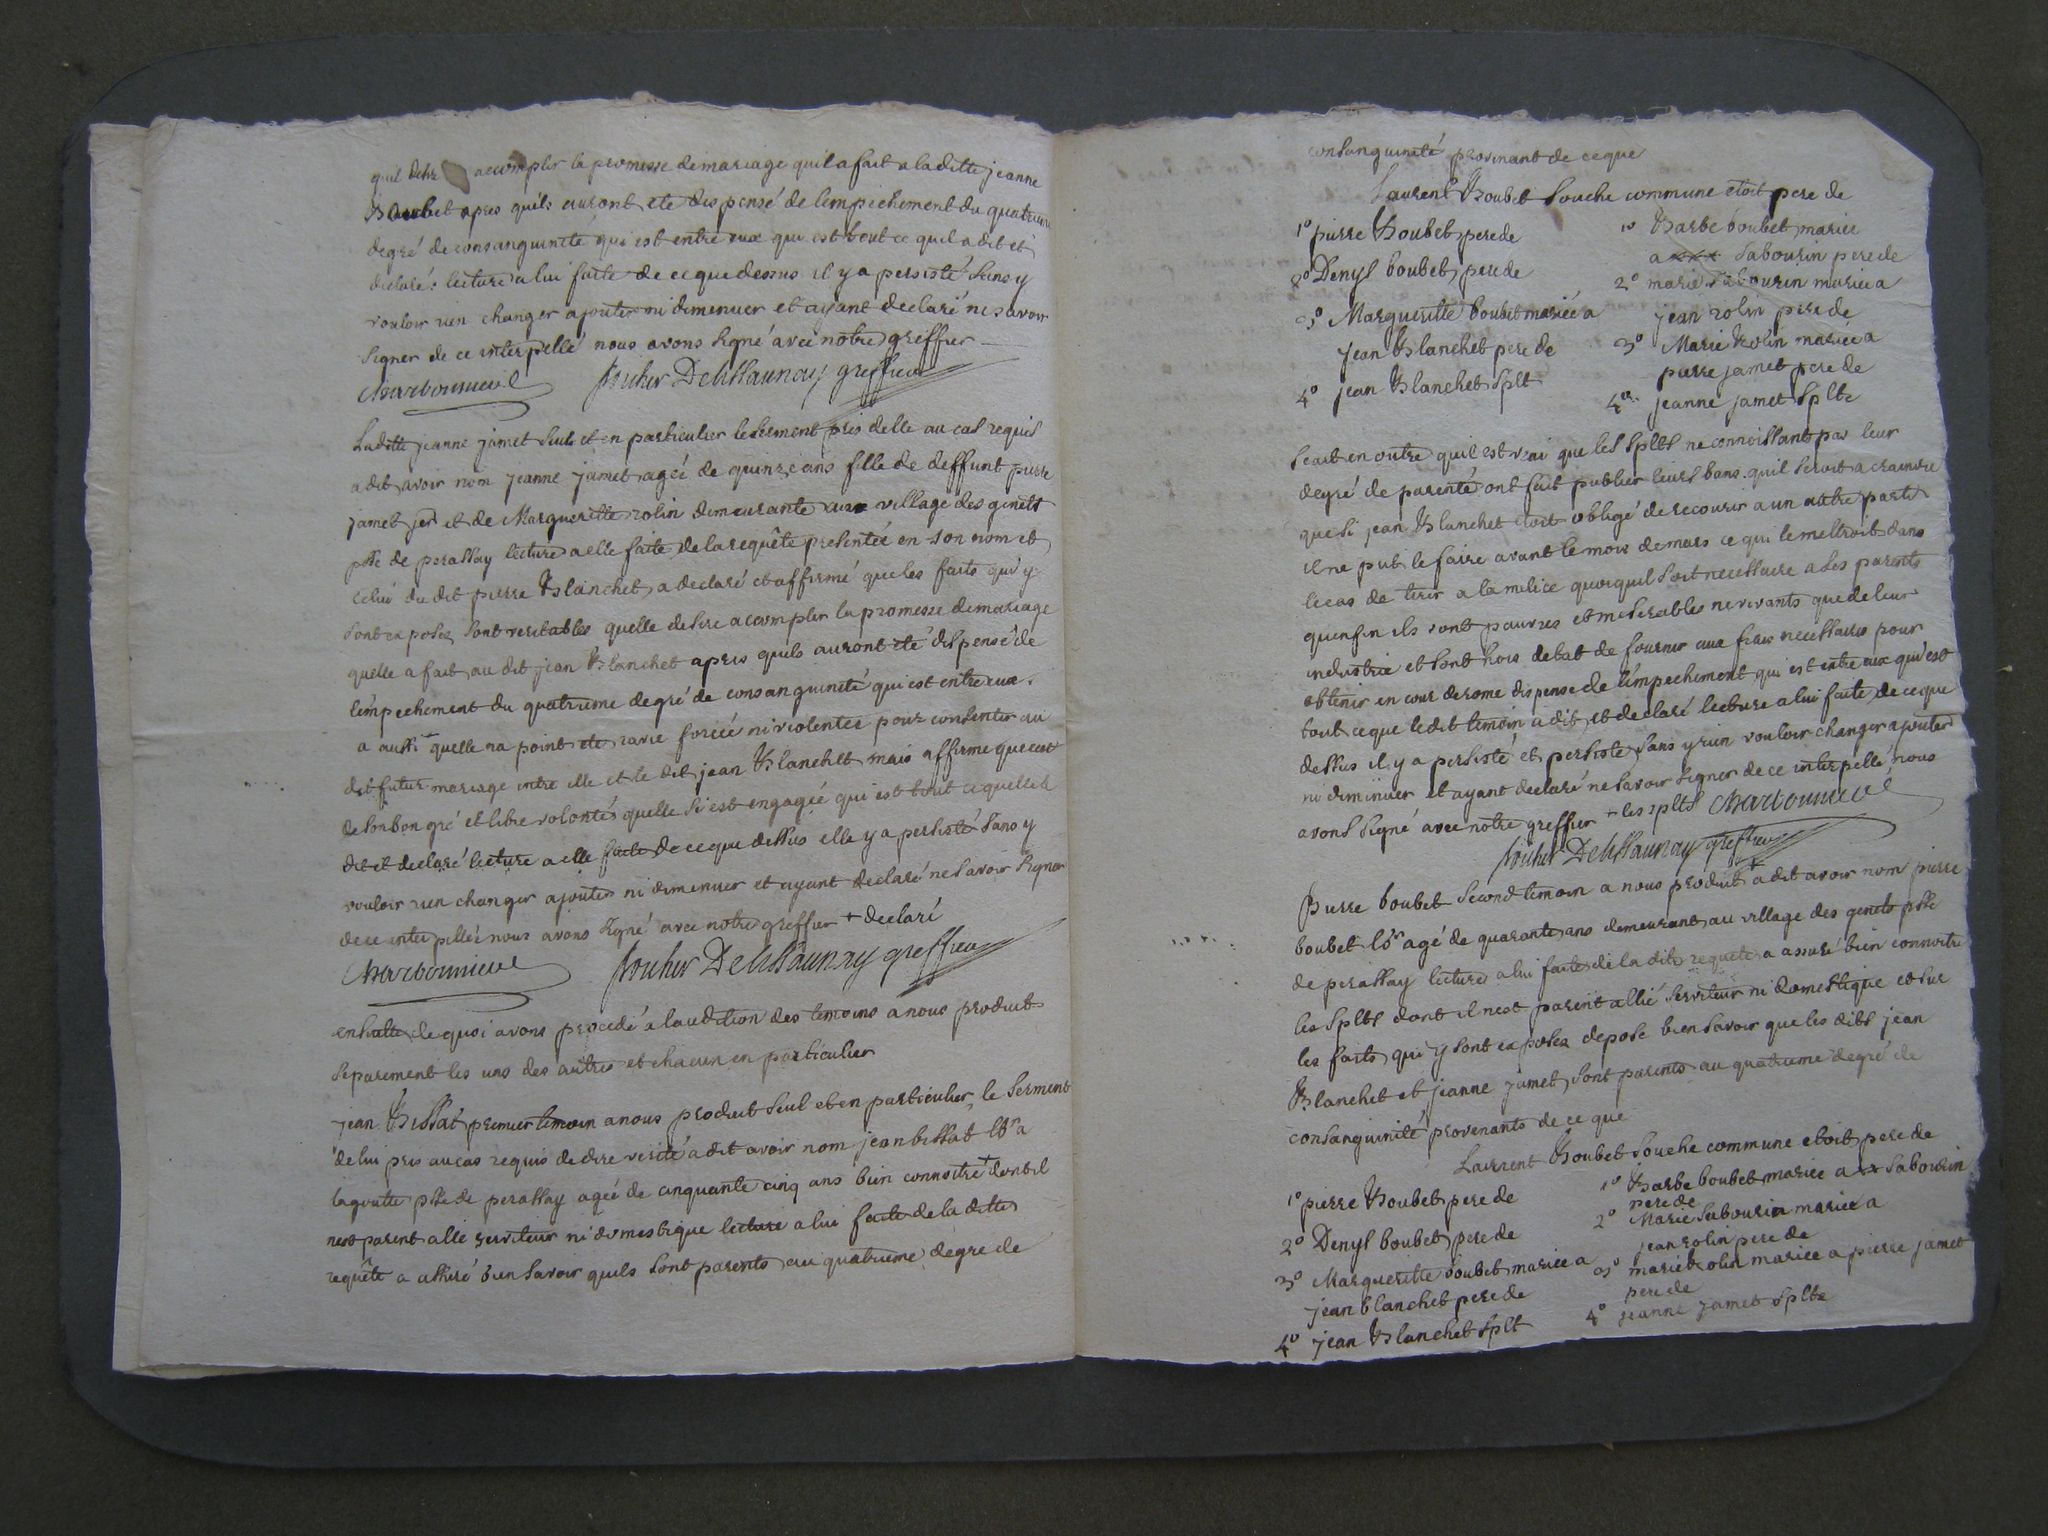 quil desire accomplir la promesse de mariage quil a fait a laditte jeanne
apres quils auront ete dispensé de lempechement du quatrieme
degré de consanguinité qui est entre eux qui est tout ce quil a dit et
declaré: lecture a lui faite de ce que dessus il y a persisté sans y
vouloir rien changer ajouter ni diminuer et ayant declaré ne savoir
signer de ce interpellé nous avons signé avec notre greffier
greffier
Laditte jeanne jamet seule et en particulier le serment pris delle au cas requis
a dit avoir nom jeanne jamet agée de quinze ans fille de deffunt pierre
jamet jer et de Margueritte rolin demeurante aux village des genets
psse de perassay lecture a elle faite de la requête presentée en son nom et
celui du dit pierre Blanchet a declaré et affirmé que les faits qui y
sont exposez sont veritables quelle desire accomplir la promesse de mariage
quelle a fait au dit jean Blanchet apres quils auront ete dispensé de
lempechement du quatrieme degré de consanguinité qui est entre eux.
a aussi quelle na point ete ravie forcée ni violentée pour consentir au
dit futur mariage entre elle et le dit jean Blanchet mais affirme que cest
de son bon gré et libre volonté quelle si est engagée qui est tout ce quelle a
dit et declaré lecture a elle faite de ce que dessus elle y a persisté sans y
vouloir rien changer ajouter ni diminuer et ayant declaré ne savoir signer
de ce interpellée nous avons signé avec notre greffier + declaré
greffier
ensuitte de quoi avons procedé a laudition des temoins a nous produits
separement les uns des autres et chacun en particulier
jean Bissat premier temoin a nous produit seul et en particulier, le serment
de lui pris au cas requis de dire verité a dit avoir nom jean bissat lbr a
lagoutte psse de perassay agée de cinquante cinq ans bien connoitre + dont il
nest parent allié serviteur ni domestique lecture a lui faite de la ditte
requête a assuré bien savoir quils sont parents au quatrieme degre de
consanguinité provenant de ce que
Laurent Boubet souche commune etoit pere de
1o pierre Boubet pere de
2o Denys boubet pere de
3o Margueritte boubet mariée a
jean Blanchet pere de
4o jean Blanchet splt
1o Barbe boubet mariée
a xxx sabourin pere de
2o marie sabourin mariée a
jean rolin pere de
3o Marie Rolin mariée a
pierre jamet pere de
4o jeanne jamet splte
scait en outre quil est vrai que les splts ne connoissants pas leur
degré de parenté ont fait publier leurs bans. quil seroit a craindre
que si jean Blanchet etoit obligé de recourir a un autre parti
il ne put le faire avant le mois de mars ce qui le mettroit dans
le cas de tirer a la milice quoiquil soit necessaire a ses parents
quenfin ils sont pauvres et miserables ne vivants que de leur
industrie et sont hors detat de fournir aux frais necessaires pour
obtenir en cour de rome dispense de lempechement qui est entre eux qui est
tout ce que ledit temoin a dit et declaré lecture a lui faite de ce que
dessus il y a persisté et persiste sans y rien vouloir changer ajouter
ni diminuer et ayant declaré ne savoir signer de ce interpellé nous
avons signé avec notre greffier + les splts
greffier
Pierre boubet second temoin a nous produit + a dit avoir nom pierre
boubet lbr agé de quarante ans demeurant au village des genets psse
de perassay lecture a lui faite de la dite requete a assuré bien connoitre
les splts dont il nest parent allié serviteur ni domestique et sur
les faits qui y sont exposez depose bien savoir que les dits jean
Blanchet et jeanne jamet sont parents au quatrieme degré de
consanguinité provenants de ce que
Laurent Boubet souche commune etoit pere de
1o pierre Boubet pere de
2o Denys boubet pere de
3o Margueritte boubet mariée a
jean blanchet pere de
4o jean Blanchet splt
1o Barbe boubet mariée a xx sabourin
pere de
2o Marie sabourin mariée a
jean rolin pere de
3o marie Rolin mariée a pierre jamet
pere de
4o jeanne jamet splte